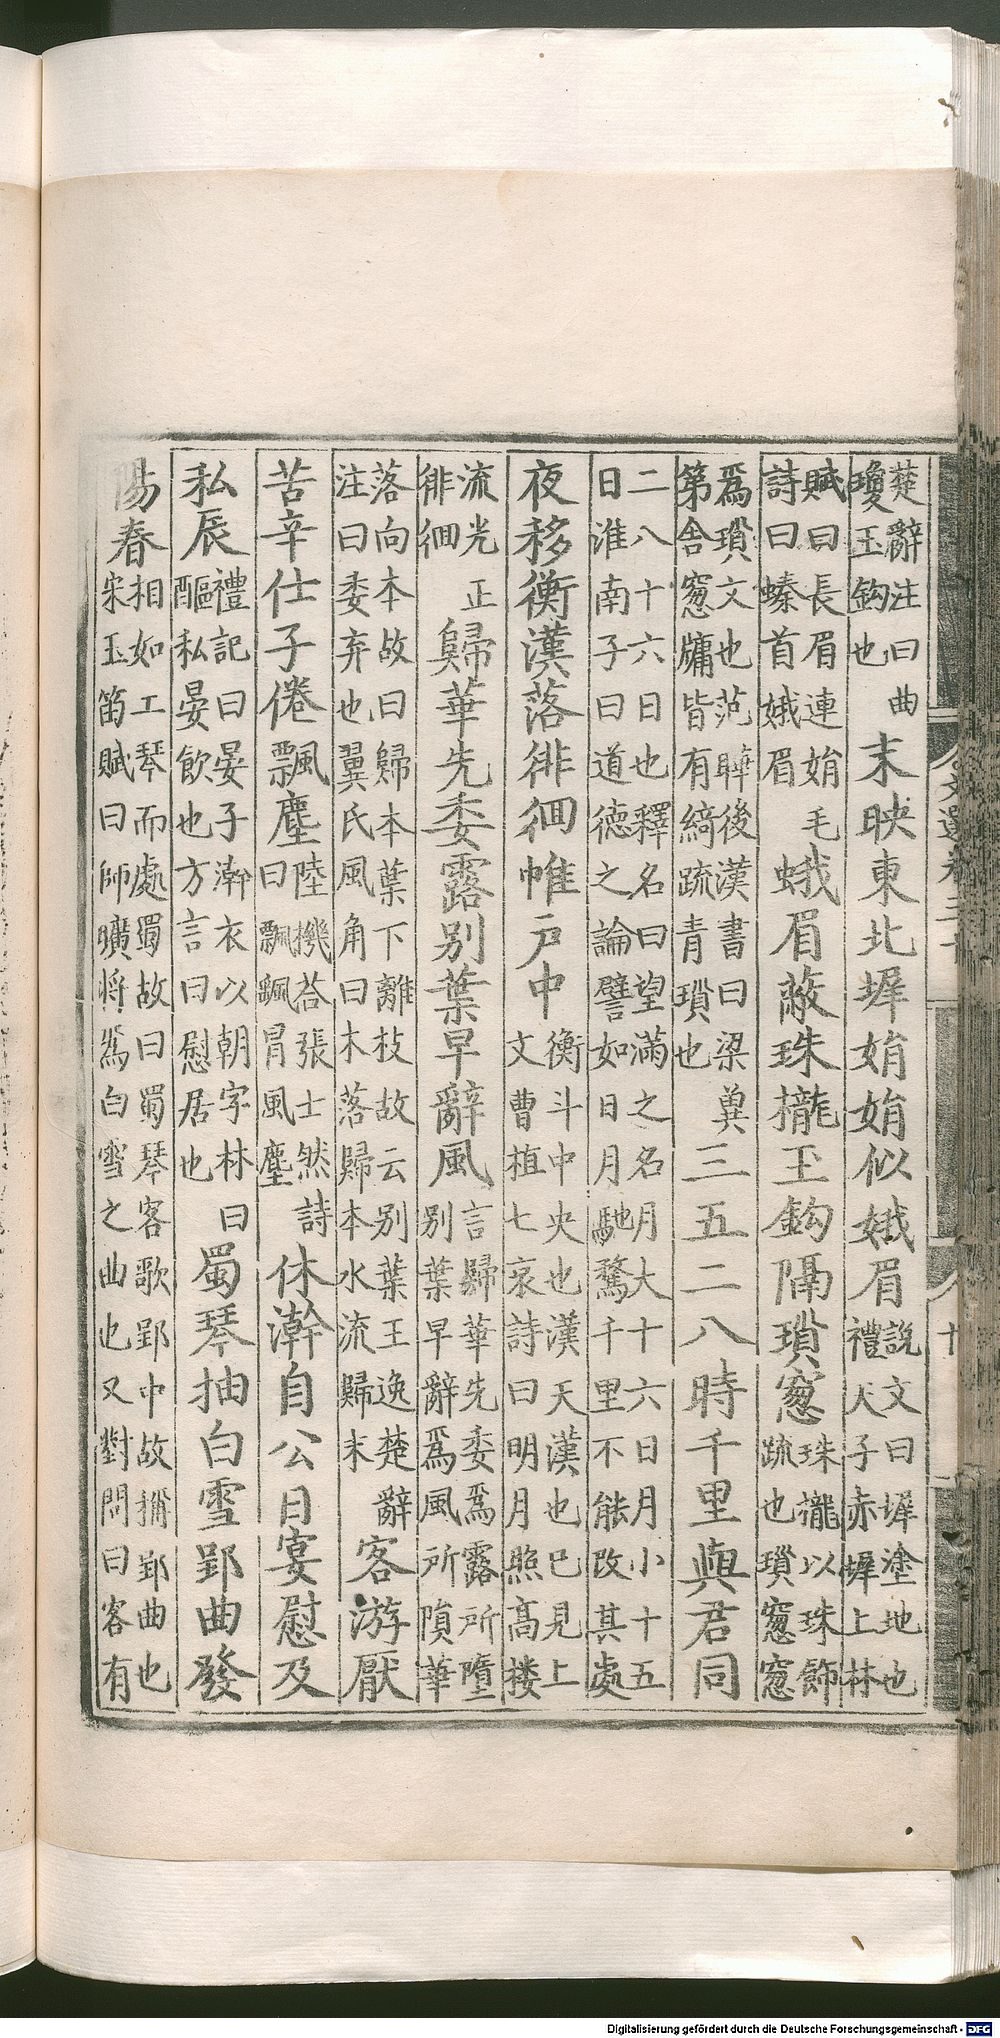 文選卷三十
十
楚辭注曰曲瓊玉鈎也末映東北墀娟娟似娥眉說文曰墀塗地也禮天子赤墀上林
賦曰長眉連娟毛詩曰螓首娥眉蛾眉蔽珠櫳玉鈎隔瑣窻珠櫳以珠飾疏也瑣窻窻
爲瑣文也范曄後漢書曰梁冀第舍窻牖皆有綺疏青瑣也三五二八時千里與君同
二八十六日也釋名曰望滿之名月大十六日月小十五日淮南子曰道德之論譬如日月馳騖千里不能改其處
夜移衡漢落徘徊帷戶中衡斗中央也漢天漢也巳見上文曹植七哀詩曰明月照高楼
流光正徘徊歸華先委露别葉早辭風言歸華先委爲露所墮别葉早辭爲風所隕華
落向本故曰歸本葉下離枝故云别葉王逸楚辭注曰委弃也翼氏風角曰木落歸本水流歸末客游厭
苦辛仕子倦飄塵陸機荅張士然詩曰飄飄冒風塵休澣自公日宴慰及
私辰禮記曰晏子澣衣以朝字林曰醧私宴飲也方言曰慰居也蜀琴抽白雪郢曲發
陽春相如工琴而處蜀故曰蜀琴客歌郢中故稱郢曲也宋玉笛賦曰師曠將爲白雪之曲也又對問曰客有
Digitalisierung gefördert durch die Deutsche Forschungsgemeinschaft - DFG